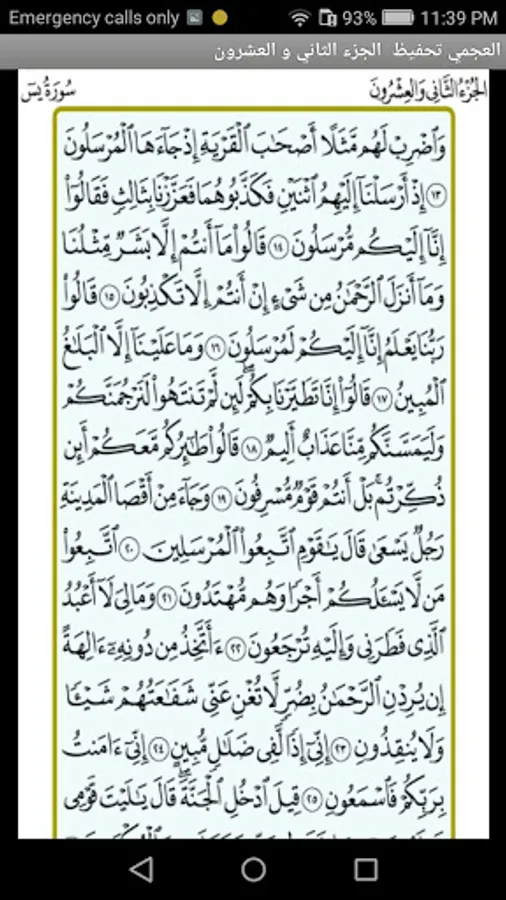 Emergency calls only 93% 11:39 PM
العجمي تحفيظ الجزء الثاني و العشرون
الجُزْءُ الثَّانِي وَالعِشْرُونَ سُورَةُ يسٓ
وَٱضْرِبْ لَهُم مَّثَلًا أَصْحَٰبَ ٱلْقَرْيَةِ إِذْ جَآءَهَا ٱلْمُرْسَلُونَ
﴿١٣﴾ إِذْ أَرْسَلْنَآ إِلَيْهِمُ ٱثْنَيْنِ فَكَذَّبُوهُمَا فَعَزَّزْنَا بِثَالِثٍ فَقَالُوٓا۟
إِنَّآ إِلَيْكُم مُّرْسَلُونَ ﴿١٤﴾ قَالُوا۟ مَآ أَنتُمْ إِلَّا بَشَرٌ مِّثْلُنَا
وَمَآ أَنزَلَ ٱلرَّحْمَٰنُ مِن شَىْءٍ إِنْ أَنتُمْ إِلَّا تَكْذِبُونَ ﴿١٥﴾ قَالُوا۟
رَبُّنَا يَعْلَمُ إِنَّآ إِلَيْكُمْ لَمُرْسَلُونَ ﴿١٦﴾ وَمَا عَلَيْنَآ إِلَّا ٱلْبَلَٰغُ
ٱلْمُبِينُ ﴿١٧﴾ قَالُوٓا۟ إِنَّا تَطَيَّرْنَا بِكُمْ ۖ لَئِن لَّمْ تَنتَهُوا۟ لَنَرْجُمَنَّكُمْ
وَلَيَمَسَّنَّكُم مِّنَّا عَذَابٌ أَلِيمٌ ﴿١٨﴾ قَالُوا۟ طَٰٓئِرُكُم مَّعَكُمْ ۚ أَئِن
ذُكِّرْتُم ۚ بَلْ أَنتُمْ قَوْمٌ مُّسْرِفُونَ ﴿١٩﴾ وَجَآءَ مِنْ أَقْصَا ٱلْمَدِينَةِ
رَجُلٌ يَسْعَىٰ قَالَ يَٰقَوْمِ ٱتَّبِعُوا۟ ٱلْمُرْسَلِينَ ﴿٢٠﴾ ٱتَّبِعُوا۟
مَن لَّا يَسْـَٔلُكُمْ أَجْرًا وَهُم مُّهْتَدُونَ ﴿٢١﴾ وَمَا لِىَ لَآ أَعْبُدُ
ٱلَّذِى فَطَرَنِى وَإِلَيْهِ تُرْجَعُونَ ﴿٢٢﴾ ءَأَتَّخِذُ مِن دُونِهِۦٓ ءَالِهَةً
إِن يُرِدْنِ ٱلرَّحْمَٰنُ بِضُرٍّ لَّا تُغْنِ عَنِّى شَفَٰعَتُهُمْ شَيْـًٔا
وَلَا يُنقِذُونِ ﴿٢٣﴾ إِنِّىٓ إِذًا لَّفِى ضَلَٰلٍ مُّبِينٍ ﴿٢٤﴾ إِنِّىٓ ءَامَنتُ
بِرَبِّكُمْ فَٱسْمَعُونِ ﴿٢٥﴾ قِيلَ ٱدْخُلِ ٱلْجَنَّةَ ۖ قَالَ يَٰلَيْتَ قَوْمِى